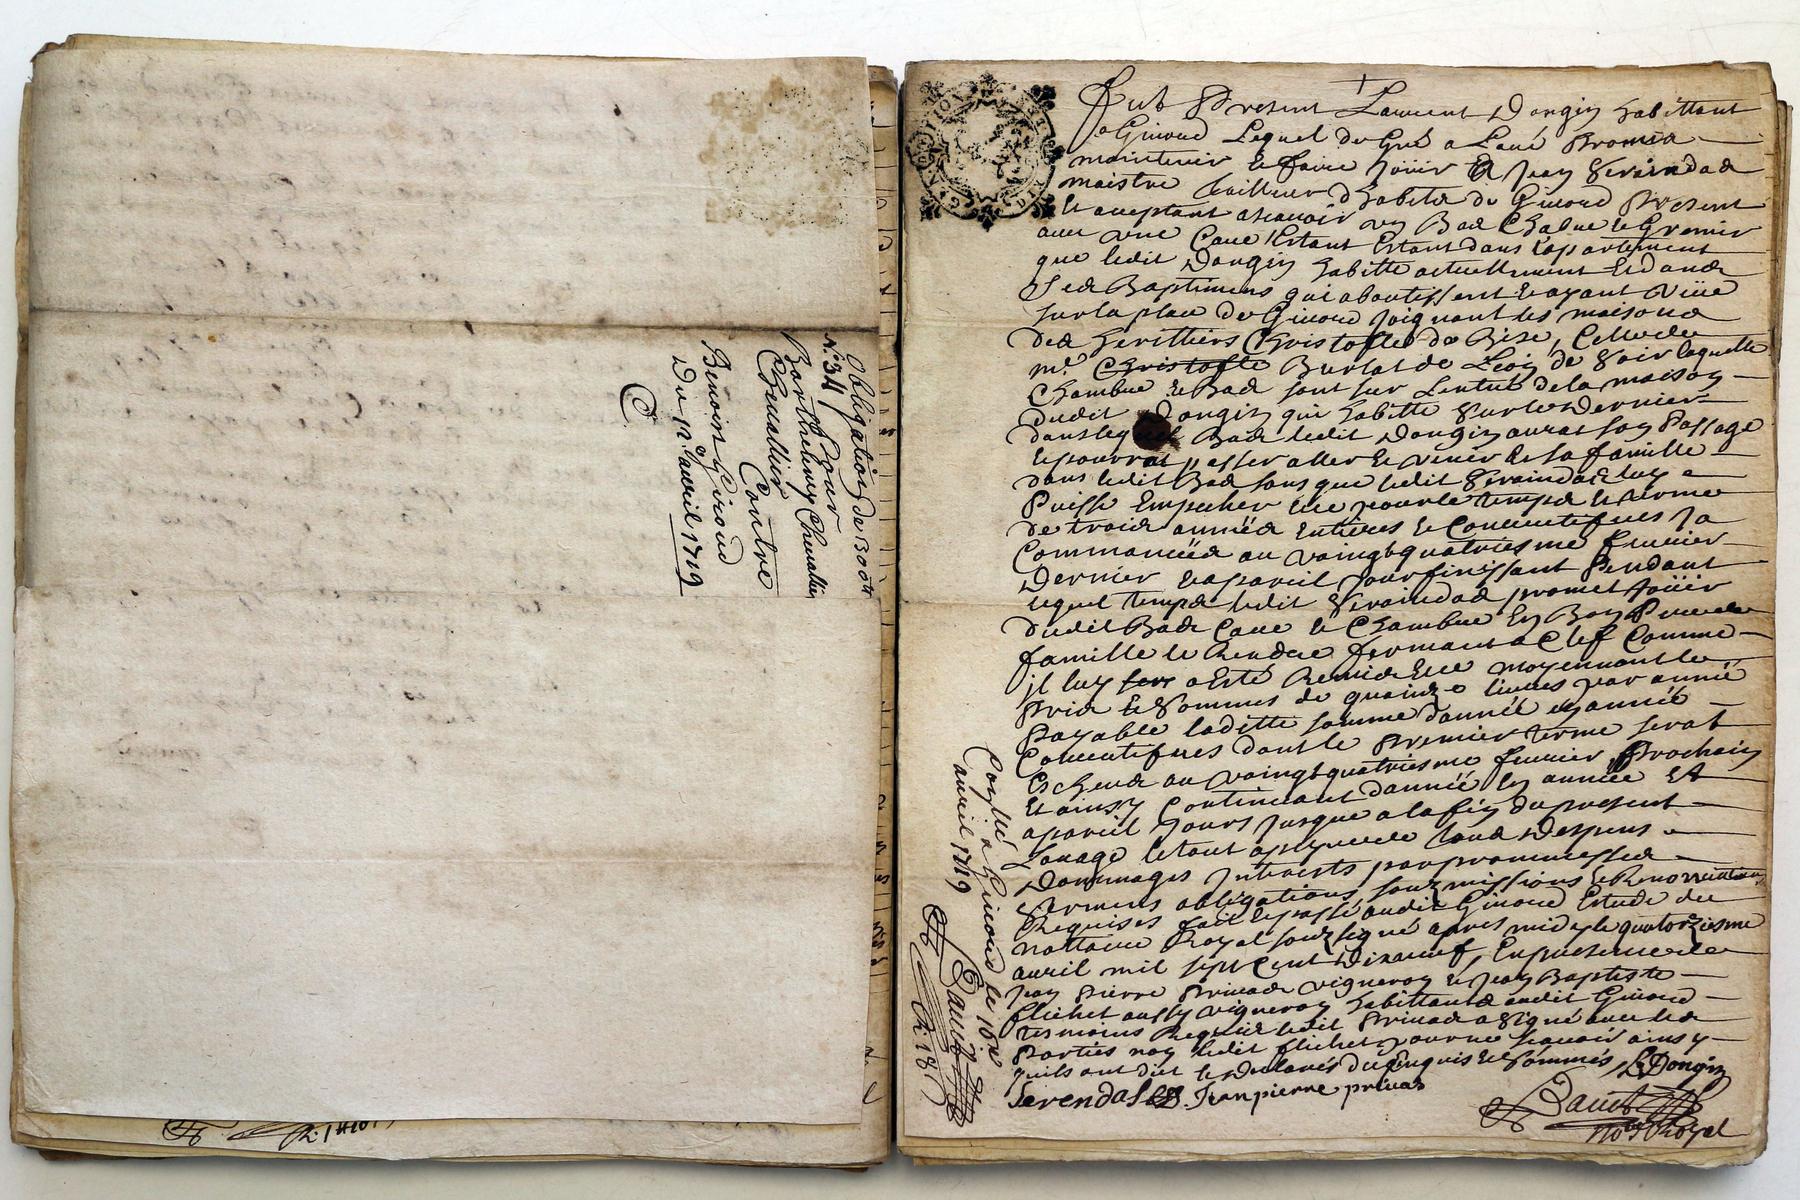 Obligation de 1300ᵗᵗ
N.° 34 / Pour
Barthelemy Chevalier
Chevallier
Contre
Benoist Giroud
Du 12ᵉ avril 1719
Fut Present Laurent Dongin habittant
a Givord Lequel de Gré a Loué Promis a
maintenir et faire Joüir a Jean Seraindas
maistre tailleur d'habits de Givord Present
et acceptant ascavoir un Bas Chabue le Grenier
avec une Cave Estant Estant dans l'apartement
que ledit Dongin habitte actuellement Et dans
Ses Baptimens qui aboutissent et ayant Viüe
sur la place de Givord Joignant les maisons
des heritiers Christofle de Bise, Celle de
mʳ. Christofle Burlat de
Chambre et Bas sont sur de la maison
dudit Dongin qui habitte sur le Dernier
dans lequel Bas ledit Dongin aurat son Passage
et pourrat passer aller et venir et sa famille
dans ledit Bas sans que ledit Seraindas luy
Puisse Empecher Ce pour le temps et terme
de trois années entieres et Consecutifves Ja
Commancées au vaingt quatriesme fevrier
Dernier et a pareil Jour finissant Pendant
lequel temps ledit Seraindas promet Joüir
dudit Bas Cave et Chambre En Bon Pere de
famille le Rendre fermant a Clef Comme
il luy a Esté Remis Et Ce moyennant le
Pris et Sommes de quainze livres par année
Payable laditte somme d'année en année
Consecutifves dont le Premier terme serat
Escheus au vaingt quatriesme fevrier Prochain
Et ainsy Continuant d'année en année Et
a pareil Jours Jusque a la fin du present
Louage le tout a peyne de tous Despens
Dommages Interests par prommesses
Sermens obligations soubmissions et Renontiations
Requises fait et passé audit Givord Estude du
nottaire Royal soubsigné apres midy le quatorziesme
avril mil sept cent Dixneuf, En presence de
Jean Pierre Privas vigneron et Jean Baptiste
flichet aussy vigneron habittants audit Givord
tesmoins Requis ledit Privas a Signé avec les
Parties non ledit flichet pour ne scavoir ainsy
quils ont dict et declarés de enquis et sommés, L Dongin
Serendas Jean pierre privas
not Royal
Conˡˡé a Givord le 16ᵉ
avril 1719